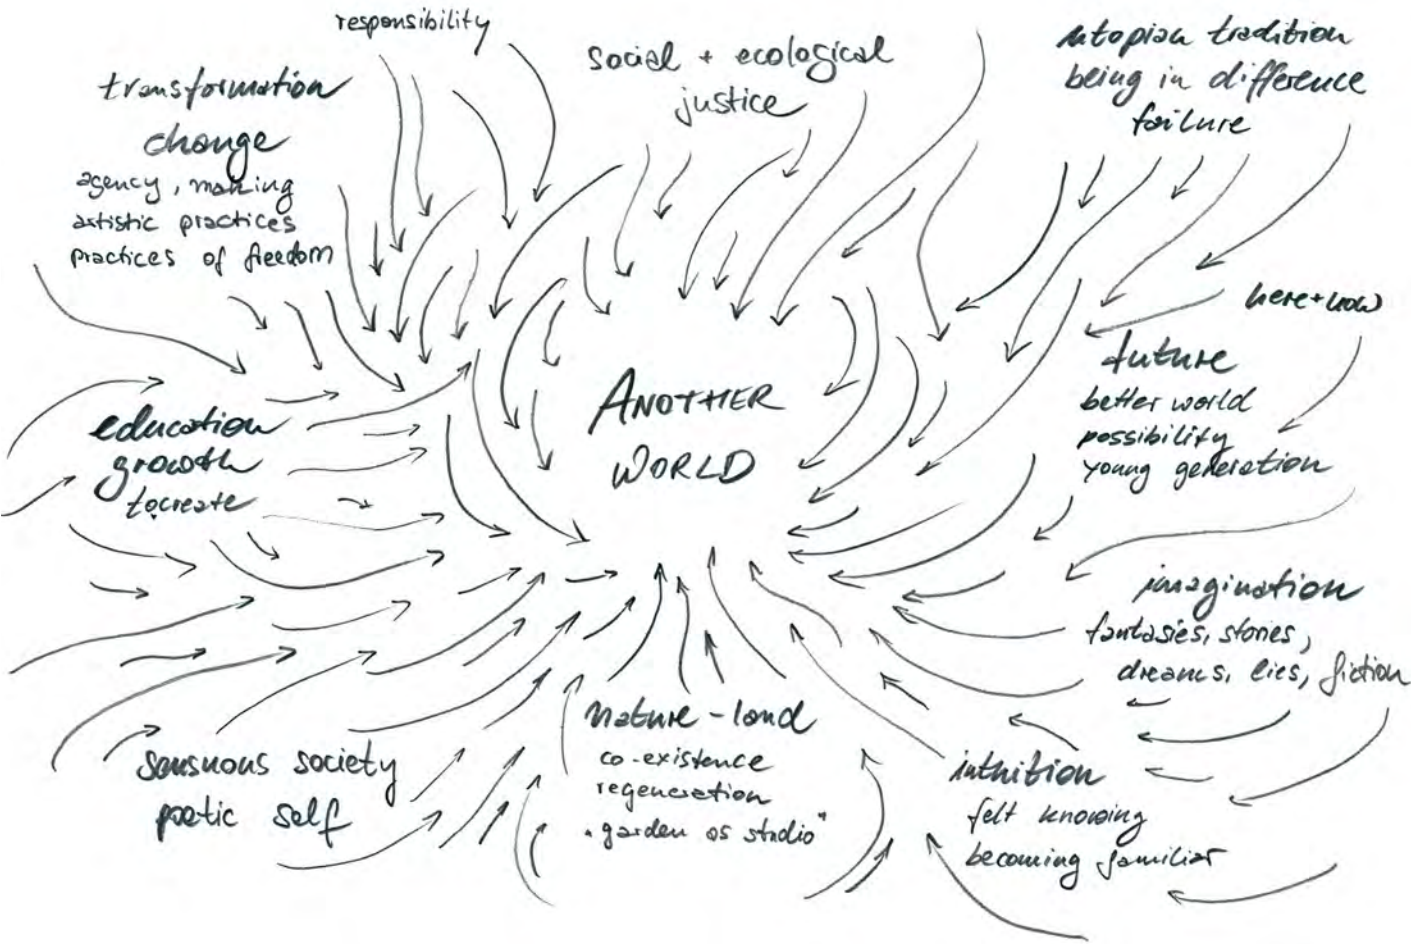 responsibility
transformation
change
agency, making
artistic practices
practices of freedom
social + ecological
justice
utopian tradition
being in difference
failure
here + now
future
better world
possibility
young generation
ANOTHER
WORLD
education
growth
to create
imagination
fantasies, stories,
dreams, lies, fiction
sensuous society
poetic self
nature - land
co-existence
regeneration
„garden as studio"
intuition
felt knowing
becoming familiar